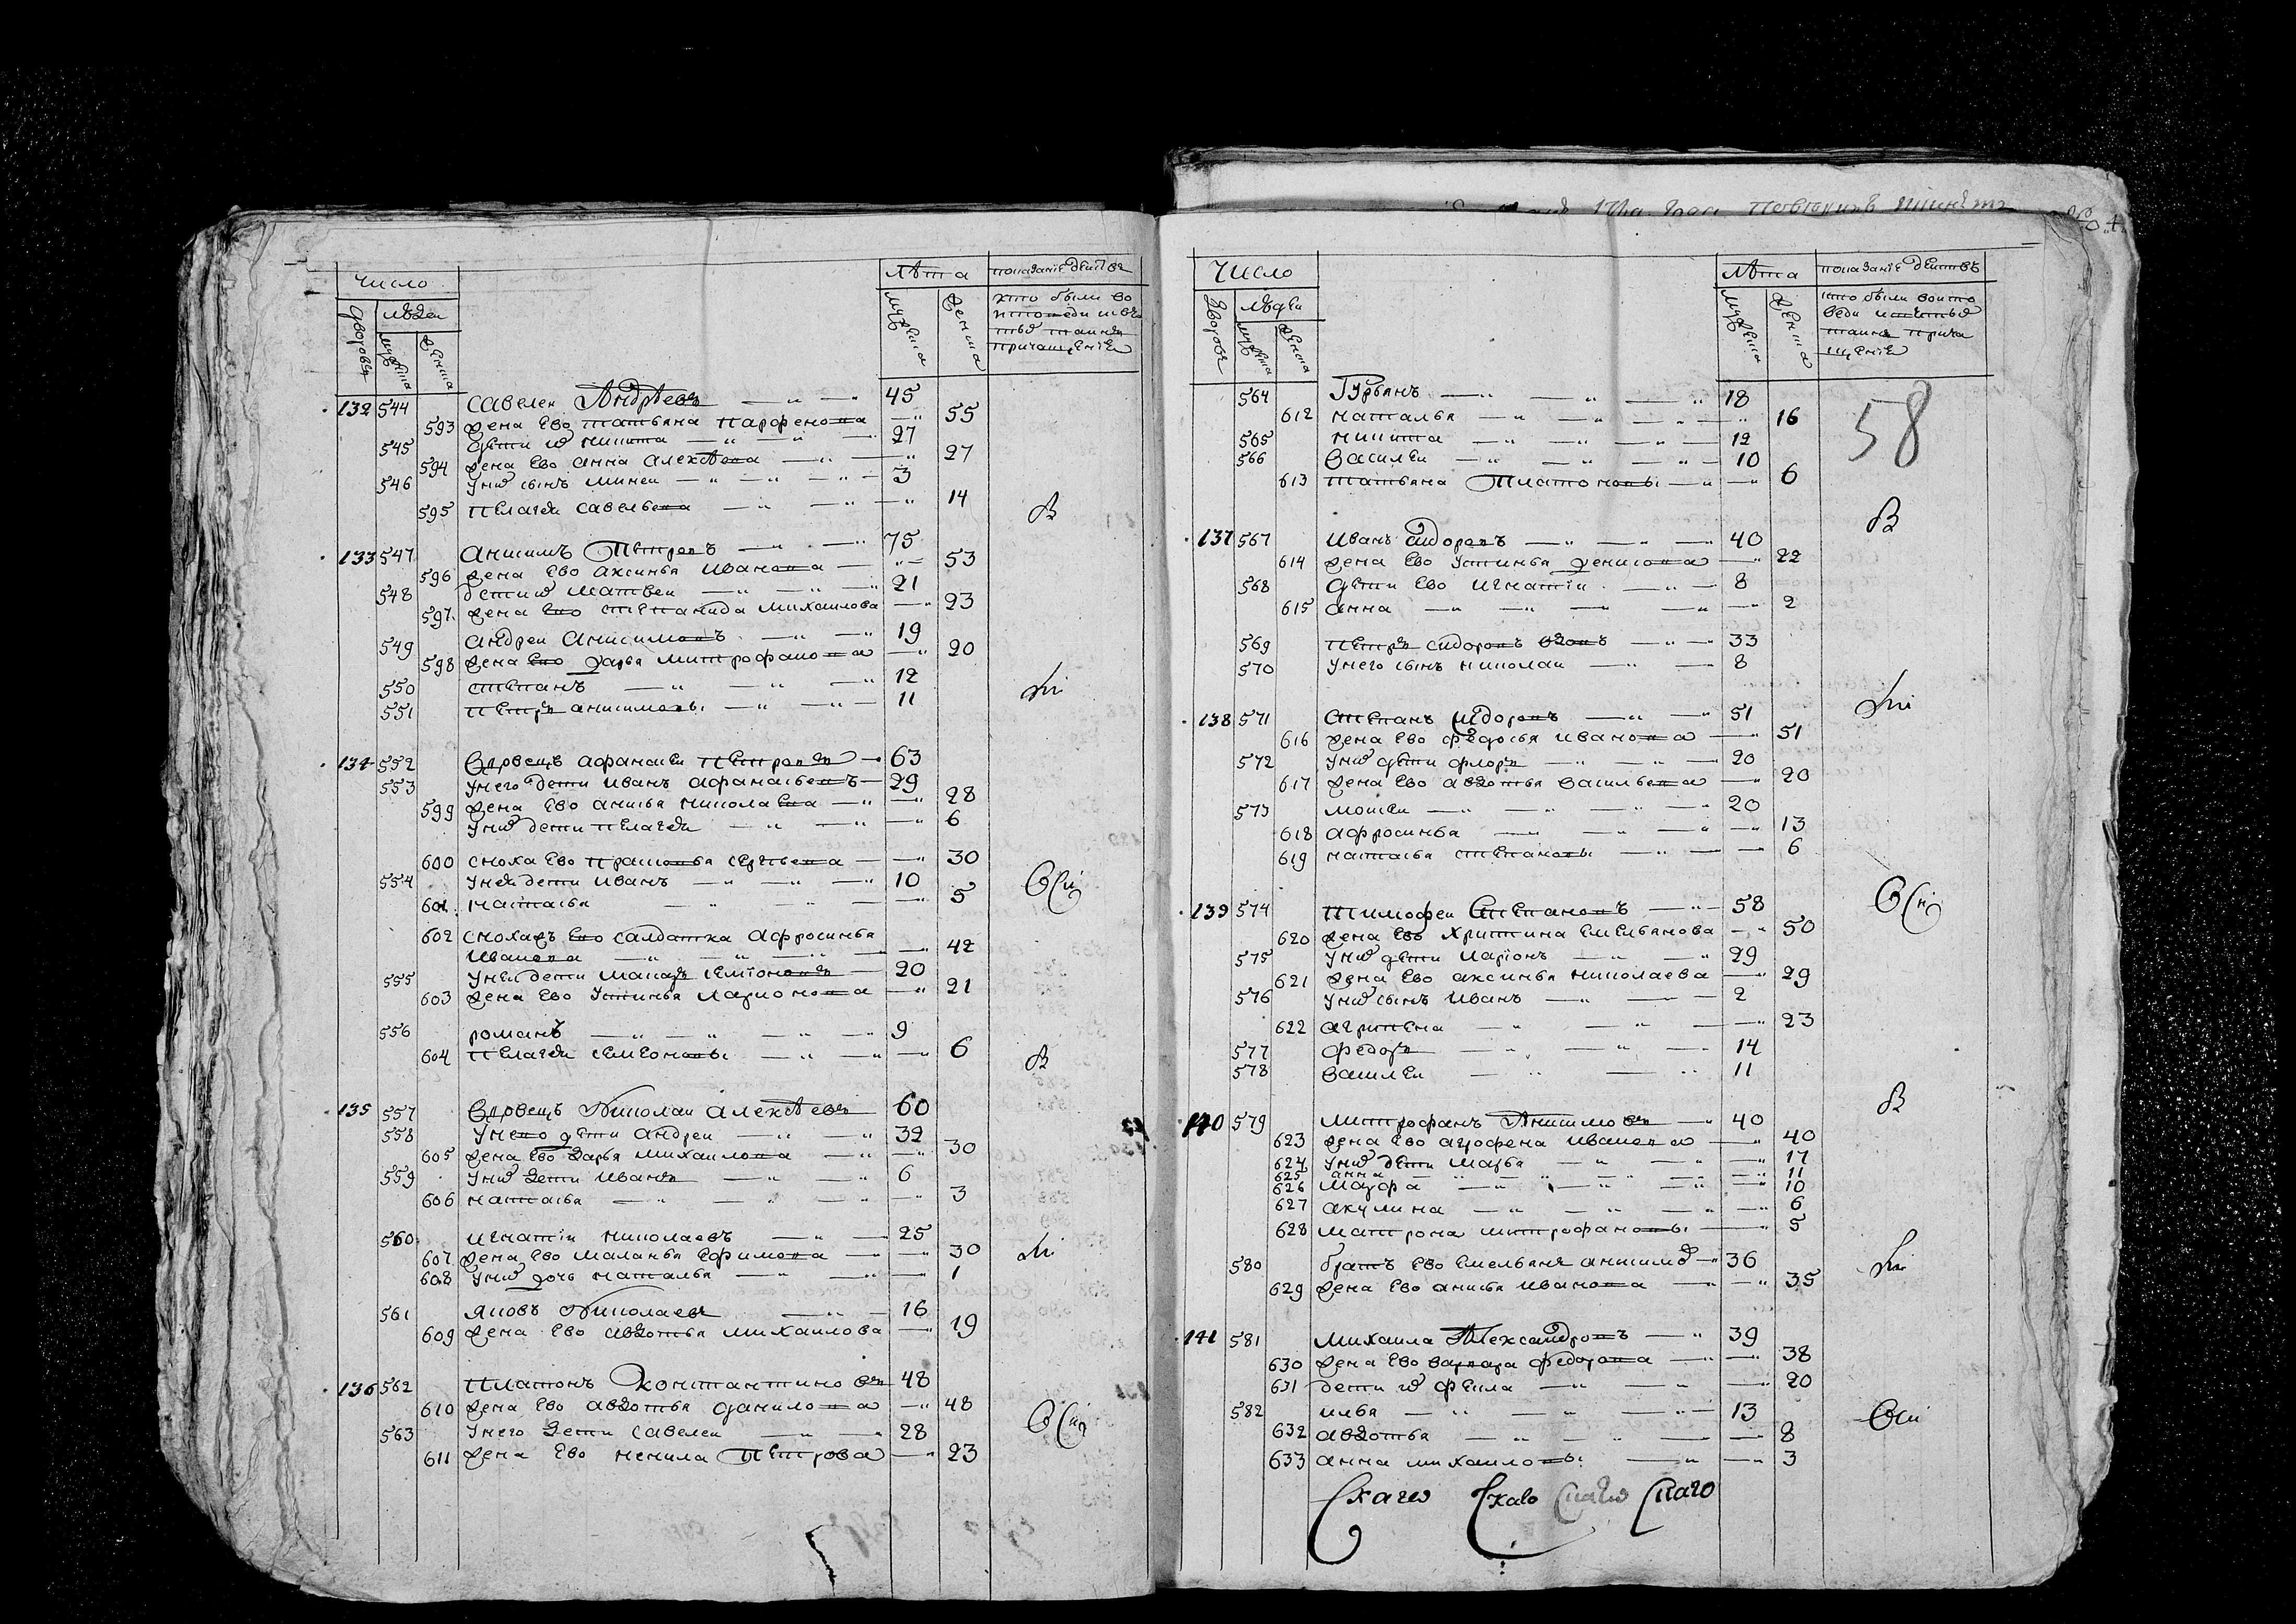 Число
людеи
дворовъ
мужеска
женска
лѣта
мужеска
женска
показание действъ
кто были во
исповеди и свя
тыя таинъ
причащения
132 544 Савелеи Андрѣевъ 45
593 жена Ево татьяна парфенова 55
545 дети ихъ никита 27
594 жена Ево анна алексѣева 27
546 у них сынъ минеи 3
595 пелагея савельева 14
В
133 547 Анисимъ Петровъ 75
596 жена Ево аксинья Иванова 53
548 дети их Матвеи 21
597 жена Ево степанида Михаилова 23
549 андреи Анисимовъ 19
598 жена Ево дарья Митрофанова 20
550 степанъ 12
551 петръ анисимовы 11
134 552 Вдовецъ афанасеи петровъ 63
553 у него дети Иванъ афанасьевъ 29
599 жена Ево анисья николаева 28
у них дети пелагея 6
600 сноха Ево прасковья сергьева 30
554 у ней дети Иванъ 10
601 наталья 5
Вси
602 снохаж Ево салдатка афросинья
Иванова 42
555 у ней дети Макаръ семионовъ 20
603 жена Ево устинья ларионова 21
556 романъ 9
604 пелагея семеновы 6
В
135 557 Вдовецъ Николаи алексѣевъ 60
558 у нево дети андреи 32
605 жена Ево дарья михаилова 30
559 у них дети Иванъ 6
606 наталья 3
560 игнатiи николаевъ 25
607 жена Ево маланья Ефимова 30
608 у них дочь наталья 1
561 яковъ Николаевъ 16
609 жена Ево авдотья михаилова 19
136 562 платонъ Константиновъ 48
610 жена Ево авдотья данилова 48
563 у него дети савелеи 28
611 жена Ево ненила Петрова 23
Вси
Число
людеи
дворовъ
мужеска
женска
лѣта
мужеска
женска
показание действъ
кто были во испо
веди и святыя
таинъ прича
щения
58
564 Гурьянъ 18
612 наталья 16
565 никита 12
566 Василеи 10
613 татьяна Платоновы 6
В
137 567 Иванъ Сидоровъ 40
614 жена Ево устинья денисова 22
568 дети Ево игнатiи 8
615 анна 2
569 петръ сидоровъ вдовъ 33
570 у него сынъ николаи 8
138 571 Степанъ Сидоровъ 51
616 жена Ево федосья иванова 51
572 у них дети флоръ 20
617 жена Ево авдотья васильева 20
573 мосеи 20
618 афросинья 13
619 наталья степановы 6
139 574 Тимофеи Степановъ 58
620 жена Евъ христина Емельянова 50
575 у них дети ларiонъ 29
621 жена Ево аксинья николаева 29
576 у них сынъ иванъ 2
622 агрипена 23
577 федоръ 14
578 василеи 11
Вси
В
140 579 Митрофанъ Анисимовъ 40
623 жена Ево агрофена иванова 40
624 у них дети марья 17
625 анна 11
626 Марфа 10
627 акулина 6
628 матрона митрофановы 5
580 братъ Ево Емельянъ анисимо 36
629 жена Ево анисья иванова 35
141 581 Михаила Александровъ 39
630 жена Ево варвара федорова 38
631 дети их фекла 20
582 илья 13
632 авдотья 8
633 анна михаиловы 3
Вси